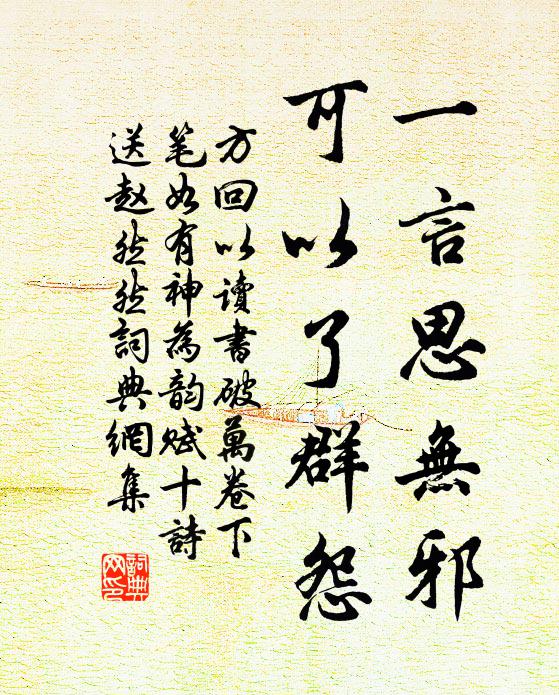 一言思無邪
可以了群怨
方回以讀書破萬卷下
笔如有神為韵赋十詩
送赵然然詞典網集
詞典
网印